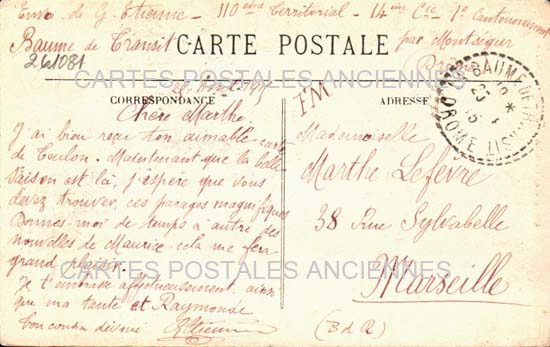 Env. de G. Etienne - 110ème Territorial - 14ème Cie - 1er Cantonnement
Baume de Transit par Montségur
CARTE POSTALE
Drôme
261081
CARTES POSTALES ANCIENNES
CORRESPONDANCE
ADRESSE
FM
LA BAUME DE TRANSIT
DROME
Chère Marthe,
J'ai bien reçu ton aimable carte
de Toulon. Maintenant que la belle
saison est là, j'espère que vous
devez trouver, ces parages magnifiques
Donnes-moi de temps à autre des
nouvelles de Maurice cela me fera
grand plaisir.
Je t'embrasse affectueusement, ainsi
que ma tante et Raymonde
Ton cousin dévoué
GEtienne
Mademoiselle
Marthe Lefevre
38 Rue Sylvabelle
Marseille
(B d R)
CARTES POSTALES ANCIENNES